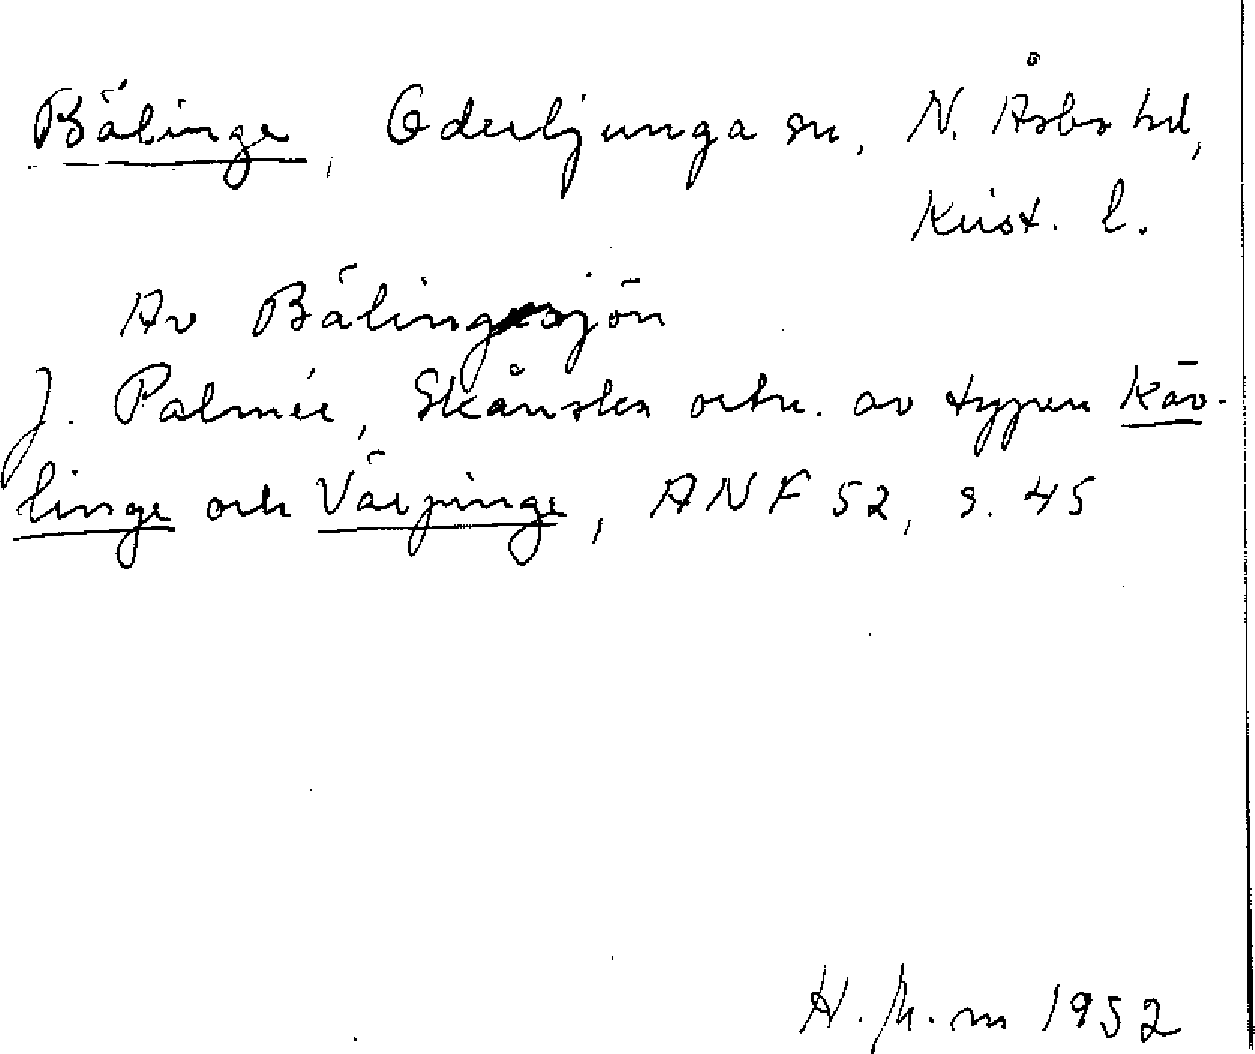 Bälinge, Oderljunga sn, N. Åsbo hd,
Krist. l.
Av Bälingesjön
J. Palmér, Skånska ortn. av typen Käv-
linge och Värpinge, ANF 52, s. 45
H. M.m 1952